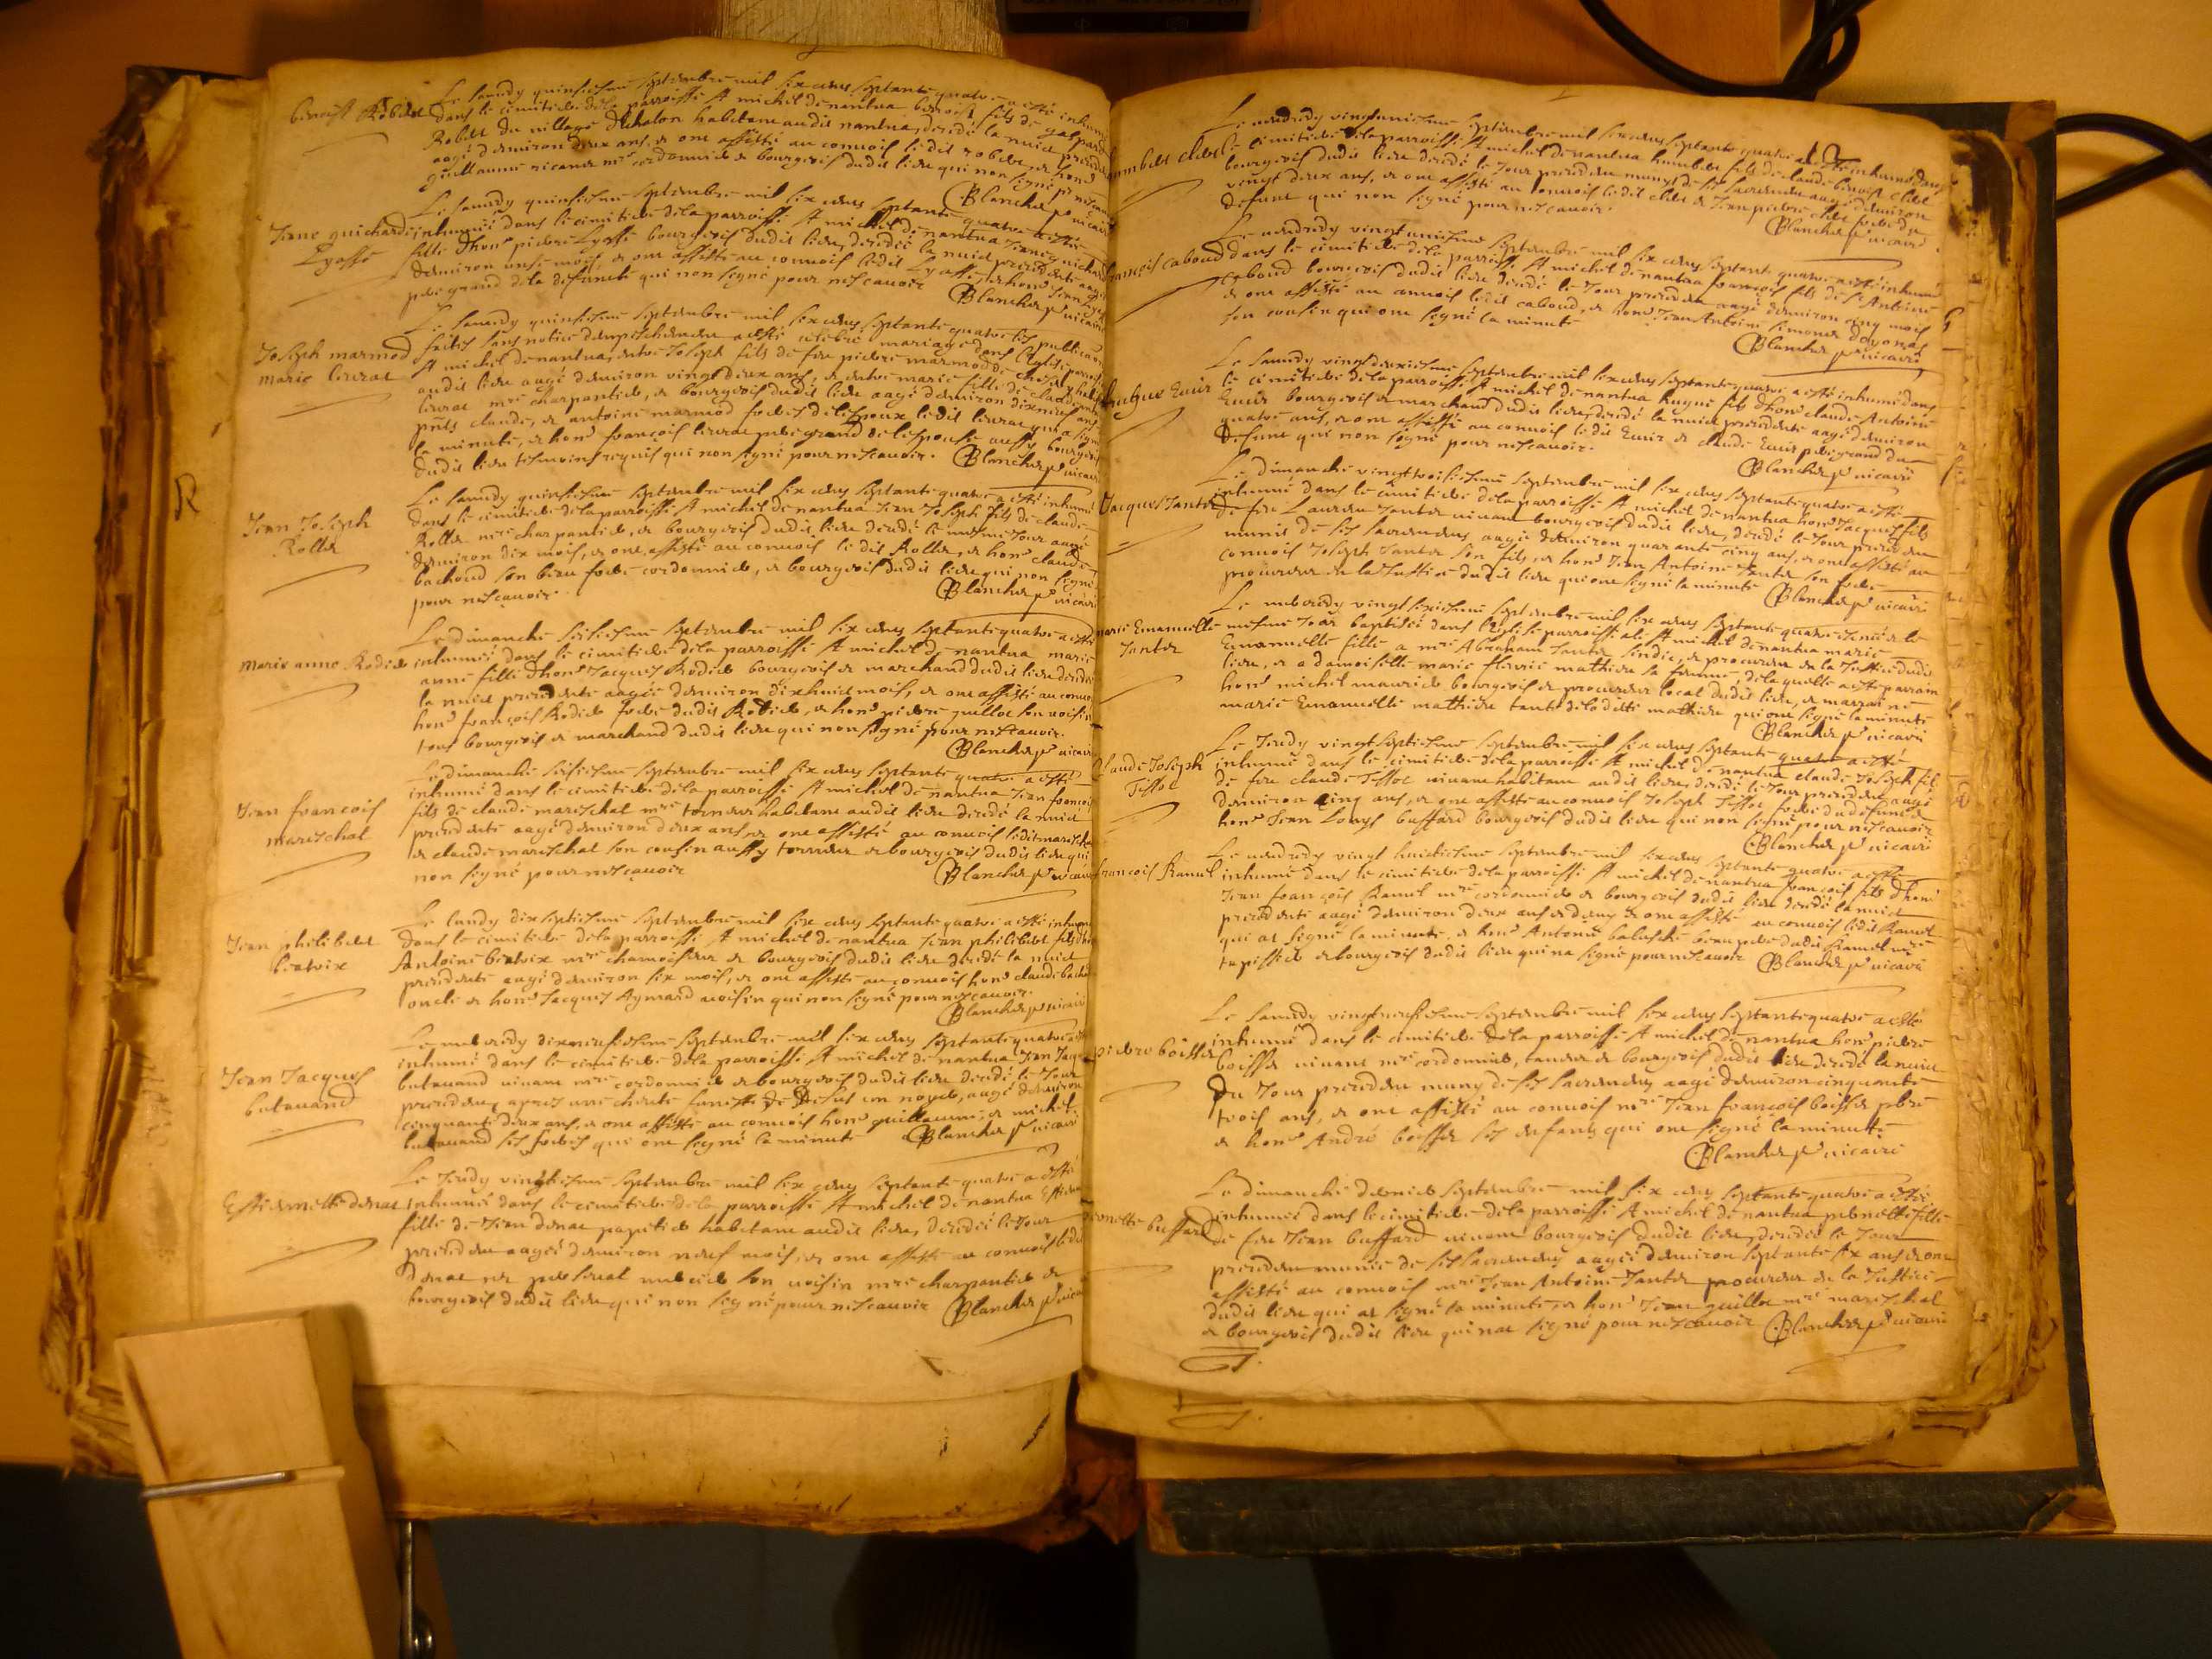 benoist Robelet
Le samedy quinsiesme septembre mil six cens septante quatre a esté inhumé
dans le cimitiere de la parroisse St michel de nantua benoist fils de gaspard
Robelet du village dechalon habitant audit nantua, decedé la nuict precedente
aagé denviron deux ans, et ont assisté au convois ledit robelet, et honé
guillaume ricanet mre cordonnier et bourgeois dudit lieu qui non signé pr ne scavoir
Blanchet p vicaire
Jeane guichardé
Lyasse
Le samedy quinsiesme septembre mil six cens septante quatre a esté
inhumée dans le cimitiere de la parroisse St michel de nantua Jeane guichardé
fille dhoné pierre Lyasse bourgeois dudit lieu, decedée la nuict precedente aagée
denviron unse mois, et ont assisté au convois ledit Lyasse, et honé Jean
pere grand de la defuncte qui non signé pour ne scavoir Blanchet p vicaire
Joseph marmod
marie livrat
Le samedy quinsiesme septembre mil six cens septante quatre les publications
faites sans notice dempeschement a esté celebré mariage dans leglise parroissiale
St michel de nantua, entre Joseph fils de feu pierre marmod de
audit lieu aagé denviron vingt deux ans, et entre marie fille de claude
livrat mre charpentier, et bourgeois dudit lieu aagée denviron dixneuf ans
pnts claude, et antoine marmod freres de lespoux ledit livrat qui a signé
la minute, et honé françois livrat pere grand de lespouse aussy bourgeois
dudit lieu tesmoins requis qui non signé pour ne scavoir. Blanchet p vicaire
R
Jean Joseph
Rollet
Le samedy quinsiesme septembre mil six cens septante quatre a esté inhumé
dans le cimitiere de la parroisse St michel de nantua Jean Joseph fils de claude
Rollet mre charpentier, et bourgeois dudit lieu decedé le mesme Jour aagé
denviron dix mois, et ont assisté au convois ledit Rollet, et honé claude
bachoud son beau frere cordonnier, et bourgeois dudit lieu qui non signé
pour ne scavoir. Blanchet p vicaire
marie anne Rodier
Le dimanche seisiesme septembre mil six cens septante quatre a esté
inhumée dans le cimitiere de la parroisse St michel de nantua marie
anne fille dhoné Jacques Rodier bourgeois et marchand dudit lieu decedée
la nuict precedente aagée denviron dixhuict mois, et ont assisté au convois
honé françois Rodier frere dudit Rodier, et honé pierre guillot son voisin
tous bourgeois et marchand dudit lieu qui non signé pour ne scavoir.
Blanchet p vicaire
Jean francois
mareschal
Le dimanche seisiesme septembre mil six cens septante quatre a esté
inhumé dans le cimitiere de la parroisse St michel de nantua Jean françois
fils de claude mareschal mre tourneur habitant audit lieu decedé la nuict
precedente aagé denviron deux ans, et ont assisté au convois ledit mareschal
et claude mareschal son cousin aussy tourneur et bourgeois dudit lieu qui
non signé pour ne scavoir Blanchet p vicaire
Jean philibert
beatrix
Le lundy dix septiesme septembre mil six cens septante quatre a esté inhumé
dans le cimitiere de la parroisse St michel de nantua Jean philibert fils
Antoine beatrix mre chamoiseur et bourgeois dudit lieu decedé la nuict
precedente aagé denviron six mois, et ont assisté au convois honé claude
oncle et honé Jacques Aymard voisin qui non signé pour ne scavoir.
Blanchet p vicaire
Jean Jacques
butavand
Le mercredy dixneufiesme septembre mil six cens septante quatre a esté
inhumé dans le cimitiere de la parroisse St michel de nantua Jean Jacques
butavand vivant mre cordonnier et bourgeois dudit lieu decedé le Jour
precedent, apres une cheute funeste de dessus un noyer, aagé denviron
cinquante deux ans, et ont assisté au convois honé guillaume, et michel
butavand ses freres qui ont signé la minute Blanchet p vicaire
Estiennette donat
Le Jeudy vingtiesme septembre mil six cens septante quatre a esté
inhumée dans le cimitiere de la parroisse St michel de nantua
fille de Jean donat papetier habitant audit lieu, decedée le Jour
precedent aagée denviron neuf mois, et ont assisté au convois ledit
donat et son voisin mre charpentier et
bourgeois dudit lieu qui non signé pour ne scavoir Blanchet p vicaire
Le vendredy vingtuniesme septembre mil six cens septante quatre a esté inhumé dans
le cimitiere de la parroisse St michel de nantua humbert fils de claude benoist
bourgeois dudit lieu decedé le Jour precedent muny de ses sacremens aagé denviron
vingt deux ans, et ont assisté au convois ledit et Jean pierre frere du
defunct qui non signé pour ne scavoir.
Blanchet p vicaire
françois caboud
Le vendredy vingtuniesme septembre mil six cens septante quatre a esté inhumé
dans le cimitiere de la parroisse St michel de nantua françois fils de Sr Antoine
caboud bourgeois dudit lieu decedé le Jour precedent aagé denviron cinq mois
et ont assisté au convois ledit caboud, et honé Jean Antoine simonet doyonas
son cousin qui ont signé la minute
Blanchet p vicaire
hugue
Le samedy vingtdeuxiesme septembre mil six cens septante quatre a esté inhumé dans
le cimitiere de la parroisse St michel de nantua hugue fils dhoné claude Antoine
bourgeois et marchand dudit lieu, decedé la nuict precedente aagé denviron
quatre ans, et ont assisté au convois ledit et claude pere grand du
defunct qui non signé pour ne scavoir.
Blanchet p vicaire
Jacques Jantet
Le dimanche vingttroisiesme septembre mil six cens septante quatre a esté
inhumé dans le cimitiere de la parroisse St michel de nantua honé Jacques fils
de feu Laurent Jantet vivant bourgeois dudit lieu, decedé le Jour precedent
munis de ses sacremens aagé denviron quarante cinq ans, et ont assisté au
convois Joseph Jantet son fils, et honé Jean Antoine Jantet son frere
procureur en la Justice dudit lieu qui ont signé la minute Blanchet p vicaire
marie Emanuelle
Jantet
Le mercredy vingtsixiesme septembre mil six cens septante quatre est née et le
mesme Jour baptisée dans leglise parroissiale St michel de nantua marie
Emanuelle fille a mre Abraham Jantet sindic, et procureur en la Justice dudit
lieu, et a damoiselle marie mathieu sa femme, de laquelle a esté parrain
honé michel bourgeois et procureur local dudit lieu, et marraine
marie Emanuelle mathieu tante de ladite mathieu qui ont signé la minute
Blanchet p vicaire
claude Joseph
Tissot
Le Jeudy vingtseptiesme septembre mil six cens septante quatre a esté
inhumé dans le cimitiere de la parroisse St michel de nantua claude Joseph fils
de feu claude Tissot vivant habitant audit lieu, decedé le Jour precedent aagé
denviron cinq ans, et ont assisté au convois Joseph Tissot frere du defunct et
honé Jean Louys buffard bourgeois dudit lieu qui non signé pour ne scavoir
Blanchet p vicaire
francois Ramel
Le vendredy vingt huictiesme septembre mil six cens septante quatre a esté
inhumé dans le cimitiere de la parroisse St michel de nantua françois fils dhoné
Jean françois Ramel mre cordonnier et bourgeois dudit lieu decedé la nuict
precedente aagé denviron deux ans et demy et ont assisté au convois ledit Ramel
qui at signé la minute, et honé Antoine beau pere dudit Ramel mre
tapissier et bourgeois dudit lieu qui na signé pour ne scavoir Blanchet p vicaire
pierre boisset
Le samedy vingtneufiesme septembre mil six cens septante quatre a esté
inhumé dans le cimitiere de la parroisse St michel de nantua honé pierre
boisset vivant mre cordonnier, tanneur et bourgeois dudit lieu decedé la nuict
du Jour precedent muny de ses sacremens aagé denviron cinquante
trois ans, et ont assisté au convois mre Jean francois boisset pbre
et honé André boisset ses enfans qui ont signé la minute
Blanchet p vicaire
pernette buffard
Le dimanche dernier septembre mil six cens septante quatre a esté
inhumée dans le cimitiere de la parroisse St michel de nantua pernette fille
de feu Jean buffard vivant bourgeois dudit lieu, decedée le Jour
precedent munie de ses sacremens aagée denviron septante six ans et ont
assisté au convois mre Jean Antoine Jantet procureur en la Justice
dudit lieu qui at signé la minute, et honé Jean guillot mre mareschal
et bourgeois dudit lieu qui nat signé pour ne scavoir Blanchet p vicaire